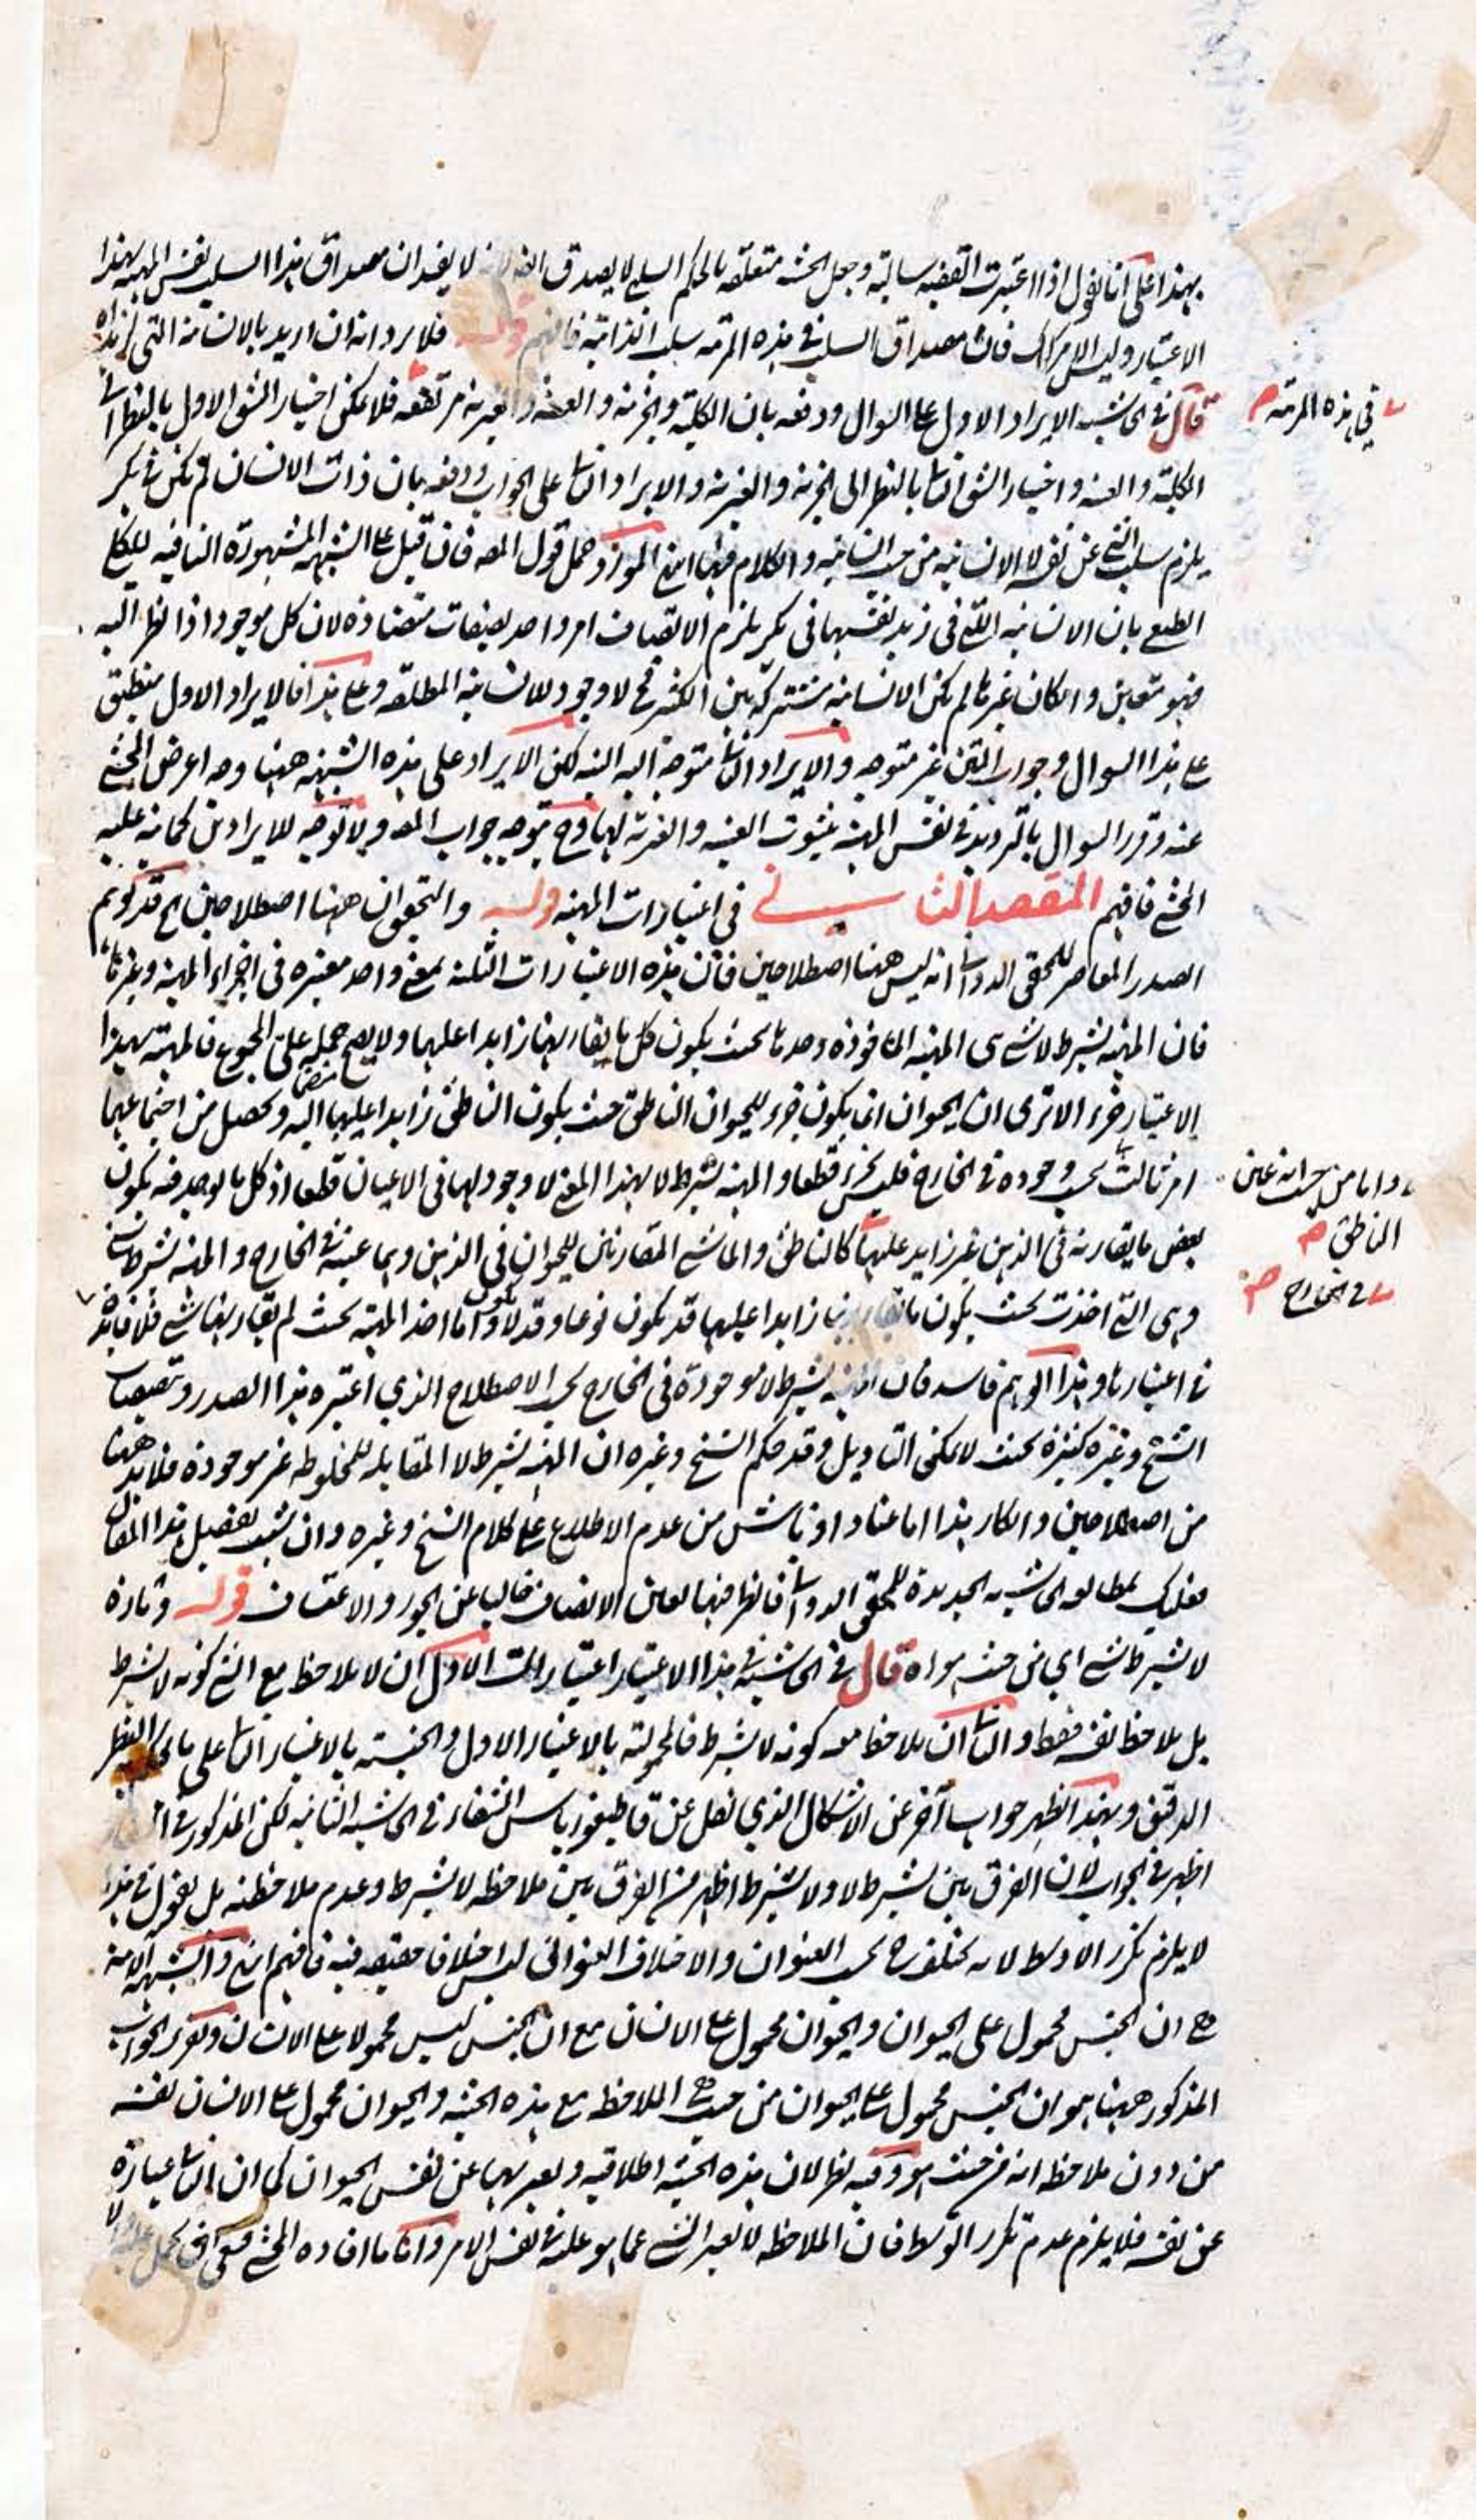 بهذا على انا نقول اذا اعتبرت القضيه سالبة وجعل الحيثية متعلقه بالحكم السلبي لا يصدق لا يفيد ان مصداق هذا السلب نفس المهية بهذا
الاعتبار وليس الامر كذلك فان مصداق السلب في هذه المرتبه سلب الذاتية فافهم قوله فلا يرد انه ان اريد بالانسانية التي لزيد
قال في الحاشيه الايراد الاول على السوال ودفعه بان الكلية والجزئية والعينية والغيرية مرتفعه فلا يمكن اختيار الشق الاول بالنظر الى
الكلية والعينية واختيار الشق الثاني بالنظر الى الجزئية والغيرية والايراد الثاني على الجواب ودفعه بان ذات الانسان لو لم تكن في بكر
يلزم سلب الشي عن نفسه لا الانسانيه من حيث انسانيه والكلام فيها انتهى المورد حمل قول المصه فان قيل على الشبهه المشهورة النافيه للكلي
الطبعي بان الانسانيه التي في زيد نفسها في بكر يلزم الاتصاف امر واحد بصفات متضادة لان كل موجود اذا نظر اليه
فهو متعين وان كان غيرها لم تكن الانسانية مشتركة بين الكثير فح لا وجود للانسانية المطلقه وعلى هذا فالايراد الاول منطبق
على هذا السوال وجواب المتن غير متوجه والايراد الثاني متوجه اليه البتة لكن الايراد على هذه الشبهه ههنا وجه اعرض المحشي
عنه وقرر السوال بالترديد في نفس المهية بثبوت العينية والغيرية لها وح يتوجه جواب المصه ولا توجه للايرادين كما نبه عليه
المحشي فافهم المقصد الثاني في اعتبارات المهية قوله والتحقيق ان ههنا اصطلاحين اه قد توهم
الصدر المعاصر للمحقق الدواني انه ليس ههنا اصطلاحين فان هذه الاعتبارات الثلثه بمعنى واحد معتبره في اجزاء المهية وغيرها
فان المهية بشرط لا شي هي المهية الماخوذة وحدها بحيث يكون كل ما يقارنها زايدا عليها ولا يصح حمله على المجموع فالمهية بهذا
الاعتبار جزء الا ترى ان الحيوان انما يكون جزء للحيوان الناطق حيث يكون الناطق زايدا عليها منضما اليه ويحصل من اجتماعهما
امر ثالث بحسب وجوده في الخارج فليس بجزء قطعا والمهية بشرط لا بهذا المعنى لا وجود لها في الاعيان قطعا اذ كل ما يوجد فيه يكون
بعض ما يقارنه في الذهن غير زايد عليها كالناطق والماشي المقارنان للحيوان في الذهن وهما عينه في الخارج والمهية بشرط شي
وهي التي اخذت بحيث يكون ما يقارنها زايدا عليها قد يكون نوعا وقد لا يكون واما اخذ المهية بحيث لم يقارنها شي فلا فائدة
في اعتبارها وهذا الوهم فاسد فان المهية بشرط لا موجودة في الخارج بحسب الاصطلاح الذي اعتبره هذا الصدر وتنصيصات
الشيخ وغيره كثيرة بحيث لا يمكن التاويل وقد حكم الشيخ وغيره ان المهية بشرط لا المقابله للمخلوطه غير موجودة فلا بد ههنا
من اصطلاحين وانكار هذا اما عنادا او ناش من عدم الاطلاع على كلام الشيخ وغيره وان شئت تفصيل هذا المقال
فعليك بمطالعه الحاشيه الجديدة للمحقق الدواني فانظر فيها بعين الانصاف خاليا عن الجور والاعتساف قوله وتارة
لا بشرط شي اي من حيث هو اه قال في الحاشية في هذا الاعتبار اعتبارات الاول ان لا يلاحظ مع الشي كونه لا بشرط
بل يلاحظ نفسه فقط والثاني ان يلاحظ معه كونه لا بشرط فالحمولية بالاعتبار الاول والجنسية بالاعتبار الثاني على ما يحكم النظر
الدقيق وبهذا ظهر جواب آخر عن الاشكال الذي نقل عن قاطيغورياس الشفاء في الحاشيه الثانيه لكن المذكور في
اظهر في الجواب لان الفرق بين بشرط لا ولا بشرط اظهر من الفرق بين ملاحظه لا بشرط وعدم ملاحظته بل نقول في هذا
لا يلزم تكرر الاوسط لانه يختلف ح بحسب العنوان والاختلاف العنواني ليس اختلافا حقيقه فيه فافهم انتهى والشبهة الآتيه
هي ان الجنس محمول على الحيوان والحيوان محمول على الانسان مع ان الجنس ليس محمولا على الانسان وتقرير الجواب
المذكور ههنا هو ان الجنس محمول على الحيوان من حيث هي الملاحظه مع هذه الحيثية والحيوان محمول على الانسان نفسه
من دون ملاحظه انه من حيث هو وفيه نظر لان هذه الحيثية اطلاقيه ويعبر بها عن نفس الحيوان كما ان الثاني عبارة
عن نفسه فلا يلزم عدم تكرر الاوسط فان الملاحظه لا تغير الشي عما هو عليه في نفس الامر واما ما افاده المحشي
في هذه المرتبه صح
واما من حيث انه عين
الناطق صح
في الخارج صح